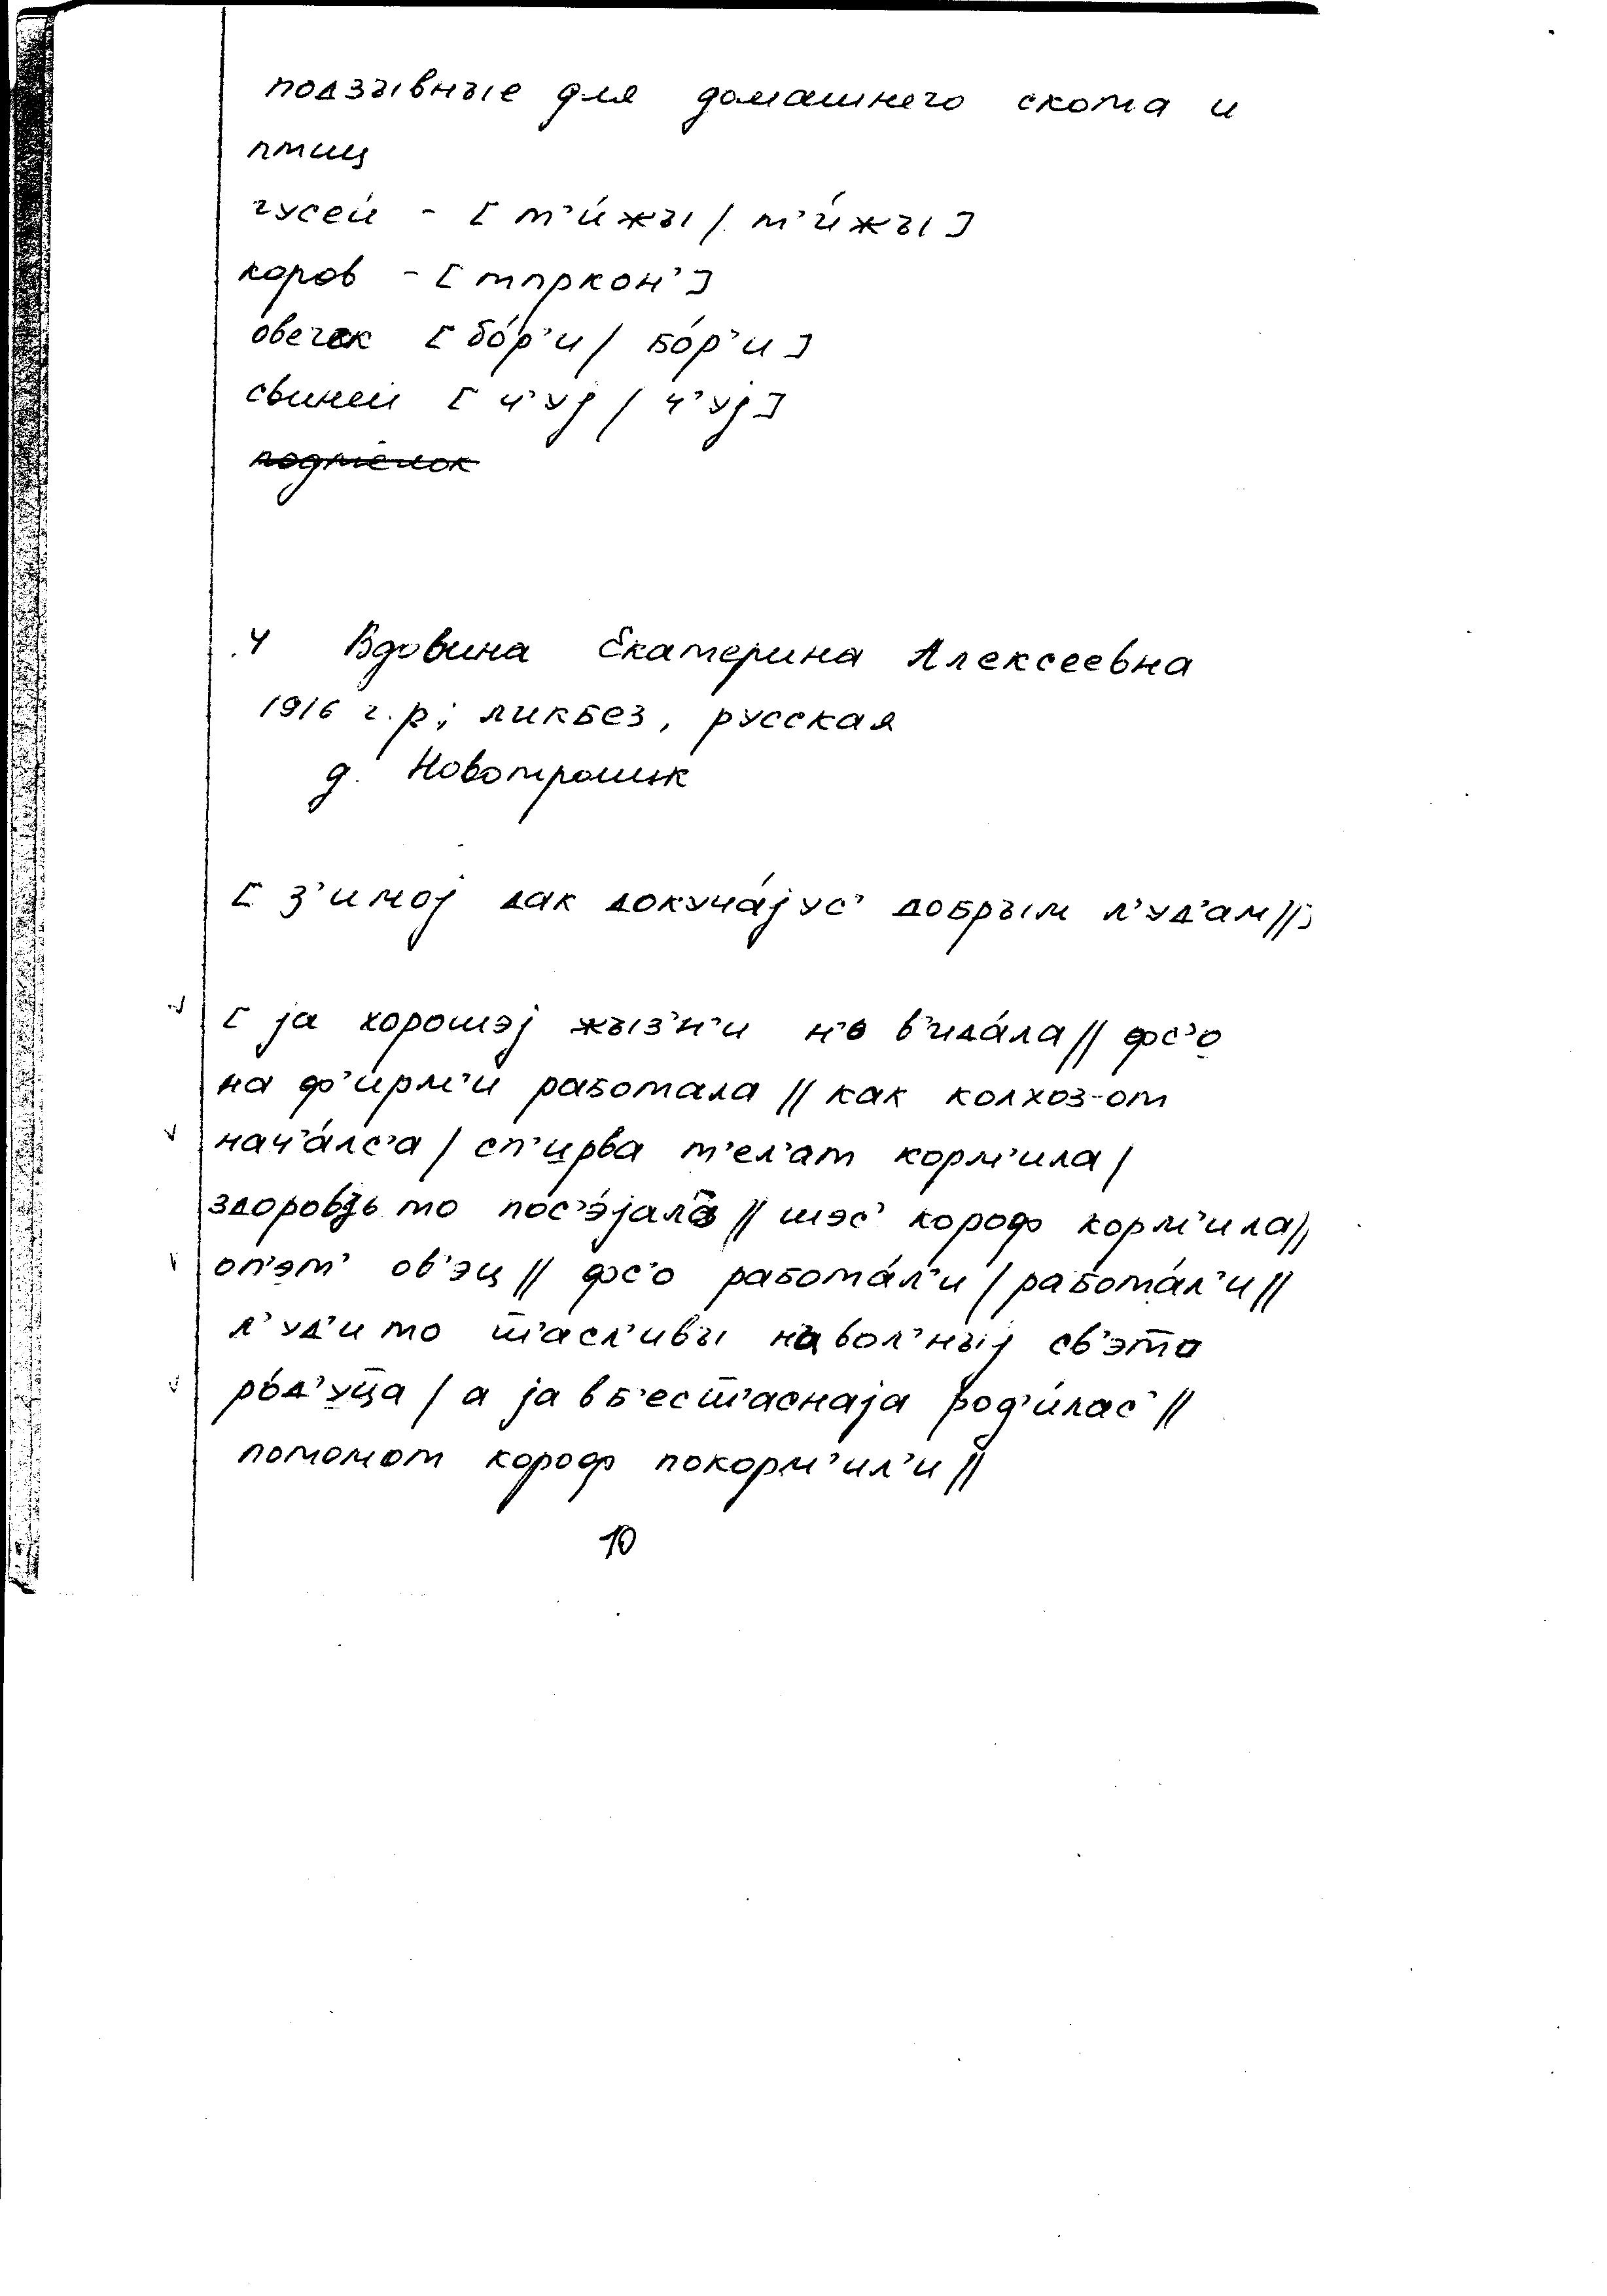 подзывные для домашнего скота и
птиц
гусей - [т'и́жы / т'и́жы]
коров - [тпркон']
овечек [бо́р'и / бо́р'и]
свиней [ч'уј / ч'уј]
подтёлок
.4 Вдовина Екатерина Алексеевна
1916 г.р; ликбез, русская
д. Новотроицк
[з'имој дак докуча́јус' добрым л'уд'ам//]
[ја хорошэј жыз'н'и н'о в'ида́ла// фс'о
на ф'ирм'и работала // как колхоз-от
нач'а́лс'а / сп'ирва т'ел'ат корм'ила /
то пос'э́јала // шэс' короф корм'ила//
оп'эт' ов'эц // фс'о работа́л'и / работа́л'и //
л'уд'и то ш̅'асл'ивы на вол'ныј св'это
ро́д'уц̅а / а ја в б'есш̅'аснаја род'и́лас' //
потомот короф покорм'ил'и //
10